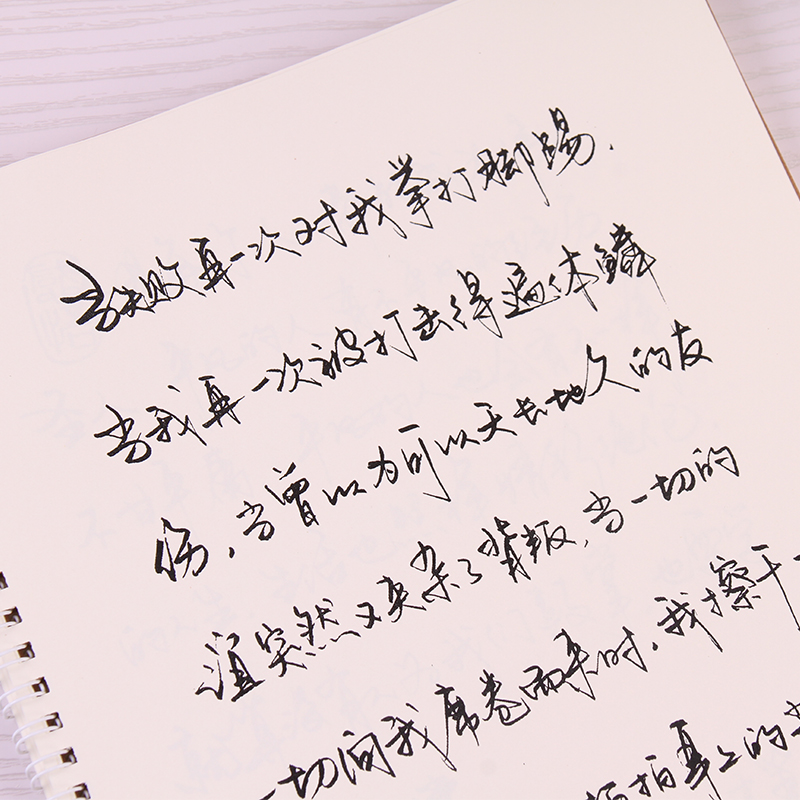 当失败再一次对我拳打脚踢,
当我再一次被打击得遍体鳞
伤,当曾以为可以天长地久的友
谊突然又夹杂了背叛,当一切的
一切向我席卷而来时,我擦干
拍拍身上的